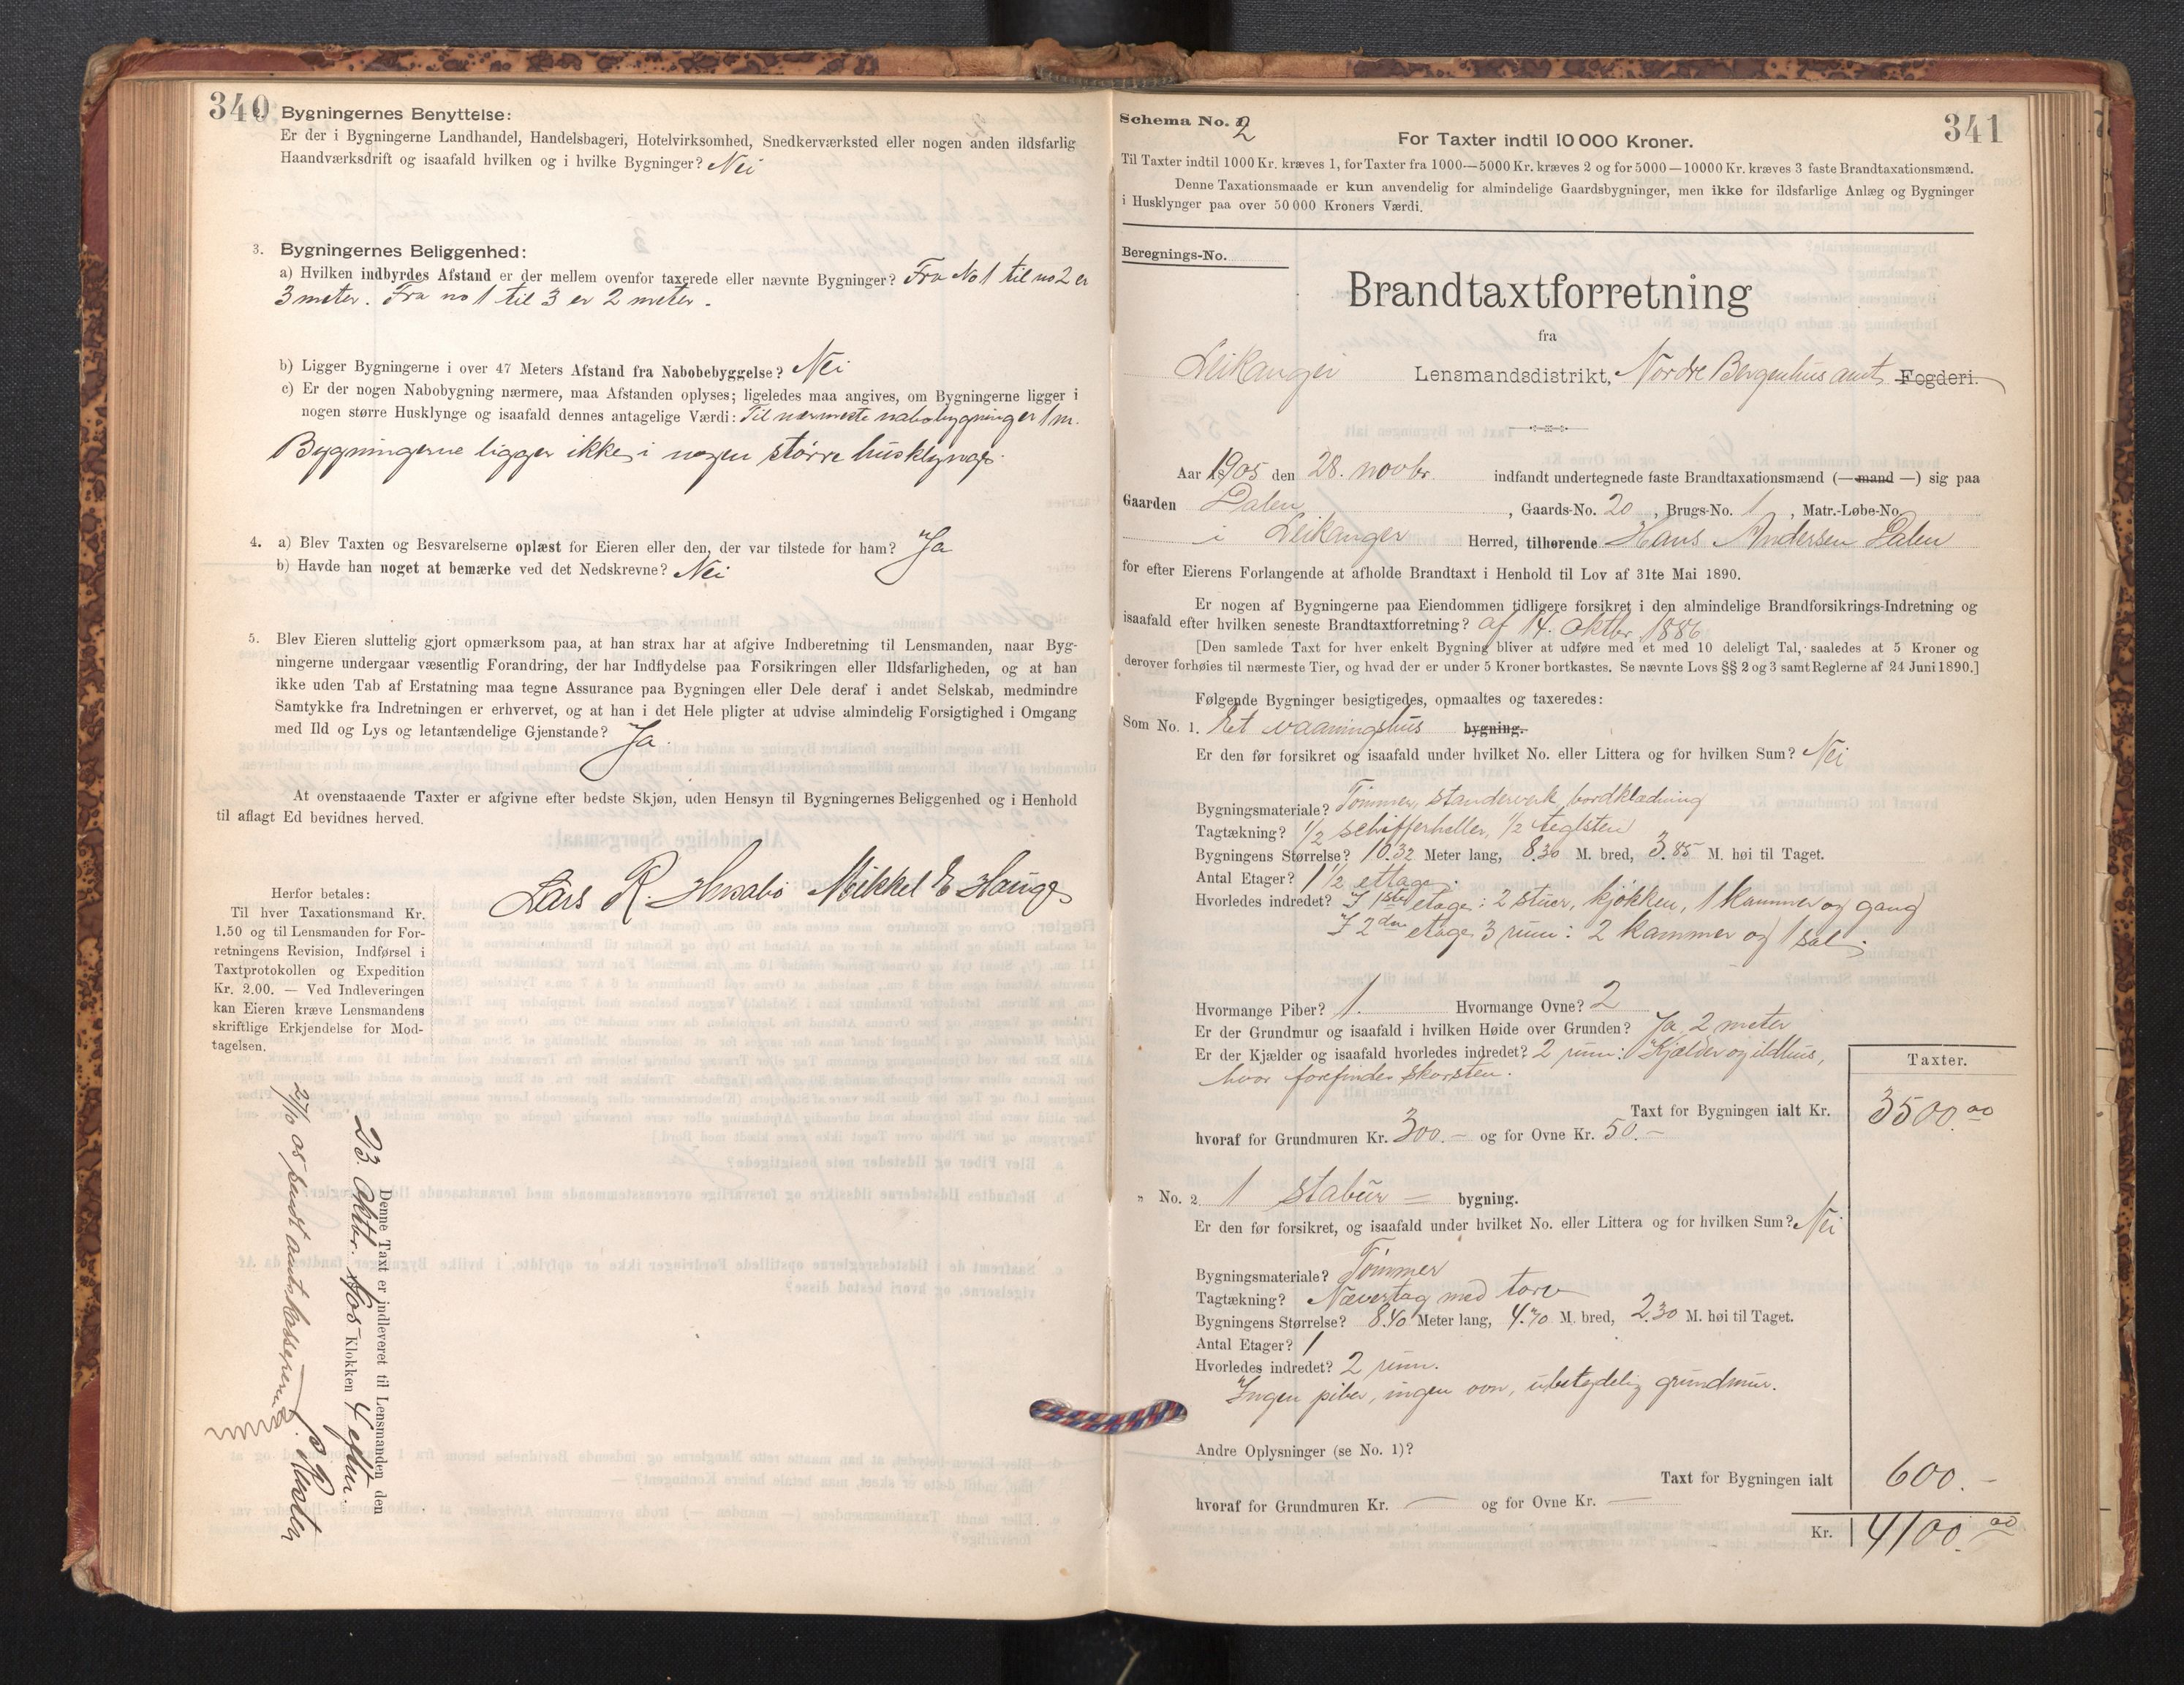 340
Bygningernes Benyttelse:
Er der i Bygningerne Landhandel, Handelsbageri, Hotelvirksomhed, Snedkerværksted eller nogen anden ildsfarlig
Haandværksdrift og isaafald hvilken og i hvilke Bygninger? Nei
3. Bygningernes Beliggenhed:
a) Hvilken indbyrdes Afstand er der mellem ovenfor taxerede eller nævnte Bygninger? Fra No 1 til no 2 er
3 meter. Fra no 1 til 3 er 2 meter.
b) Ligger Bygningerne i over 47 Meters Afstand fra Nabobebyggelse? Nei
c) Er der nogen Nabobygning nærmere, maa Afstanden oplyses; ligeledes maa angives, om Bygningerne ligger i
nogen større Husklynge og isaafald dennes antagelige Værdi: Til nærmeste nabobygning er 1 m.
Bygningerne ligger ikke i nogen større husklynge.
4. a) Blev Taxten og Besvarelserne oplæst for Eieren eller den, der var tilstede for ham? Ja
b) Havde han noget at bemærke ved det Nedskrevne? Nei
5. Blev Eieren sluttelig gjort opmærksom paa, at han strax har at afgive Indberetning til Lensmanden, naar Byg-
ningerne undergaar væsentlig Forandring, der har Indflydelse paa Forsikringen eller Ildsfarligheden, og at han
ikke uden Tab af Erstatning maa tegne Assurance paa Bygningen eller Dele deraf i andet Selskab, medmindre
Samtykke fra Indretningen er erhvervet, og at han i det Hele pligter at udvise almindelig Forsigtighed i Omgang
med Ild og Lys og letantændelige Gjenstande? Ja.
At ovenstaaende Taxter er afgivne efter bedste Skjøn, uden Hensyn til Bygningernes Beliggenhed og i Henhold
til aflagt Ed bevidnes herved.
Lars R. Husabø Mikkel E Hauge
Herfor betales:
Til hver Taxationsmand Kr.
1.50 og til Lensmanden for For-
retningens Revision, Indførsel i
Taxtprotokollen og Expedition
Kr. 2.00. — Ved Indleveringen
kan Eieren kræve Lensmandens
skriftlige Erkjendelse for Mod-
tagelsen.
Denne Taxt er indleveret til Lensmanden den
23. Oktbr. 1905 Klokken 4 eftm.
27/10 05 sendt amtskassereren
341
Schema No. 2
For Taxter indtil 10 000 Kroner.
Til Taxter indtil 1000 Kr. kræves 1, for Taxter fra 1000—5000 Kr. kræves 2 og for 5000—10000 Kr. kræves 3 faste Brandtaxationsmænd.
Denne Taxationsmaade er kun anvendelig for almindelige Gaardsbygninger, men ikke for ildsfarlige Anlæg og Bygninger
i Husklynger paa over 50 000 Kroners Værdi.
Beregnings-No.
Brandtaxtforretning
fra
Leikanger Lensmandsdistrikt, Nordre Bergenhus amt Fogderi.
Aar 1905 den 28. novbr. indfandt undertegnede faste Brandtaxationsmænd (— mand —) sig paa
Gaarden Dalen, Gaards-No. 20, Brugs-No. 1, Matr.-Løbe-No.
i Leikanger Herred, tilhørende Hans Andersen Dalen
for efter Eierens Forlangende at afholde Brandtaxt i Henhold til Lov af 31te Mai 1890.
Er nogen af Bygningerne paa Eiendommen tidligere forsikret i den almindelige Brandforsikrings-Indretning og
isaafald efter hvilken seneste Brandtaxtforretning? af 14. oktbr 1886
[Den samlede Taxt for hver enkelt Bygning bliver at udføre med et med 10 deleligt Tal, saaledes at 5 Kroner og
derover forhøies til nærmeste Tier, og hvad der er under 5 Kroner bortkastes. Se nævnte Lovs §§ 2 og 3 samt Reglerne af 24 Juni 1890.]
Følgende Bygninger besigtigedes, opmaaltes og taxeredes:
Som No. 1. Et vaaningshus bygning.
Er den før forsikret og isaafald under hvilket No. eller Littera og for hvilken Sum? Nei
Bygningsmateriale? Tømmer, standerverk, bordklædning
Tagtækning? 1/2 schifferheller, 1/2 teglsten
Bygningens Størrelse? 10.32 Meter lang, 8.30 M. bred, 3.85 M. høi til Taget.
Antal Etager? 1 1/2 ettage.
Hvorledes indredet? I 1ste etage: 2 stuer, kjøkken, 1 kammer og gang
I 2den etage 3 rum: 2 kammer og 1 sal.
Hvormange Piber? 1. Hvormange Ovne? 2
Er der Grundmur og isaafald i hvilken Høide over Grunden? Ja, 2 meter
Er der Kjælder og isaafald hvorledes indredet? 2 rum: Kjælder og ildhus,
hvor forefindes skorsten.
Taxter.
Taxt for Bygningen ialt Kr. 3500.00
hvoraf for Grundmuren Kr. 300.— og for Ovne Kr. 50.—
„ No. 2 1 stabur — bygning.
Er den før forsikret, og isaafald under hvilket No. eller Littera og for hvilken Sum? Nei
Bygningsmateriale? Tømmer
Tagtækning? Nævertag med torv
Bygningens Størrelse? 8.40 Meter lang, 4.70 M. bred, 2.30 M. høi til Taget.
Antal Etager? 1
Hvorledes indredet? 2 rum.
Ingen piber, ingen ovn, ubetydelig grundmur.
Andre Oplysninger (se No. 1)?
Taxt for Bygningen ialt 600.—
hvoraf for Grundmuren Kr. — og for Ovne Kr. —
Kr. 4100.00